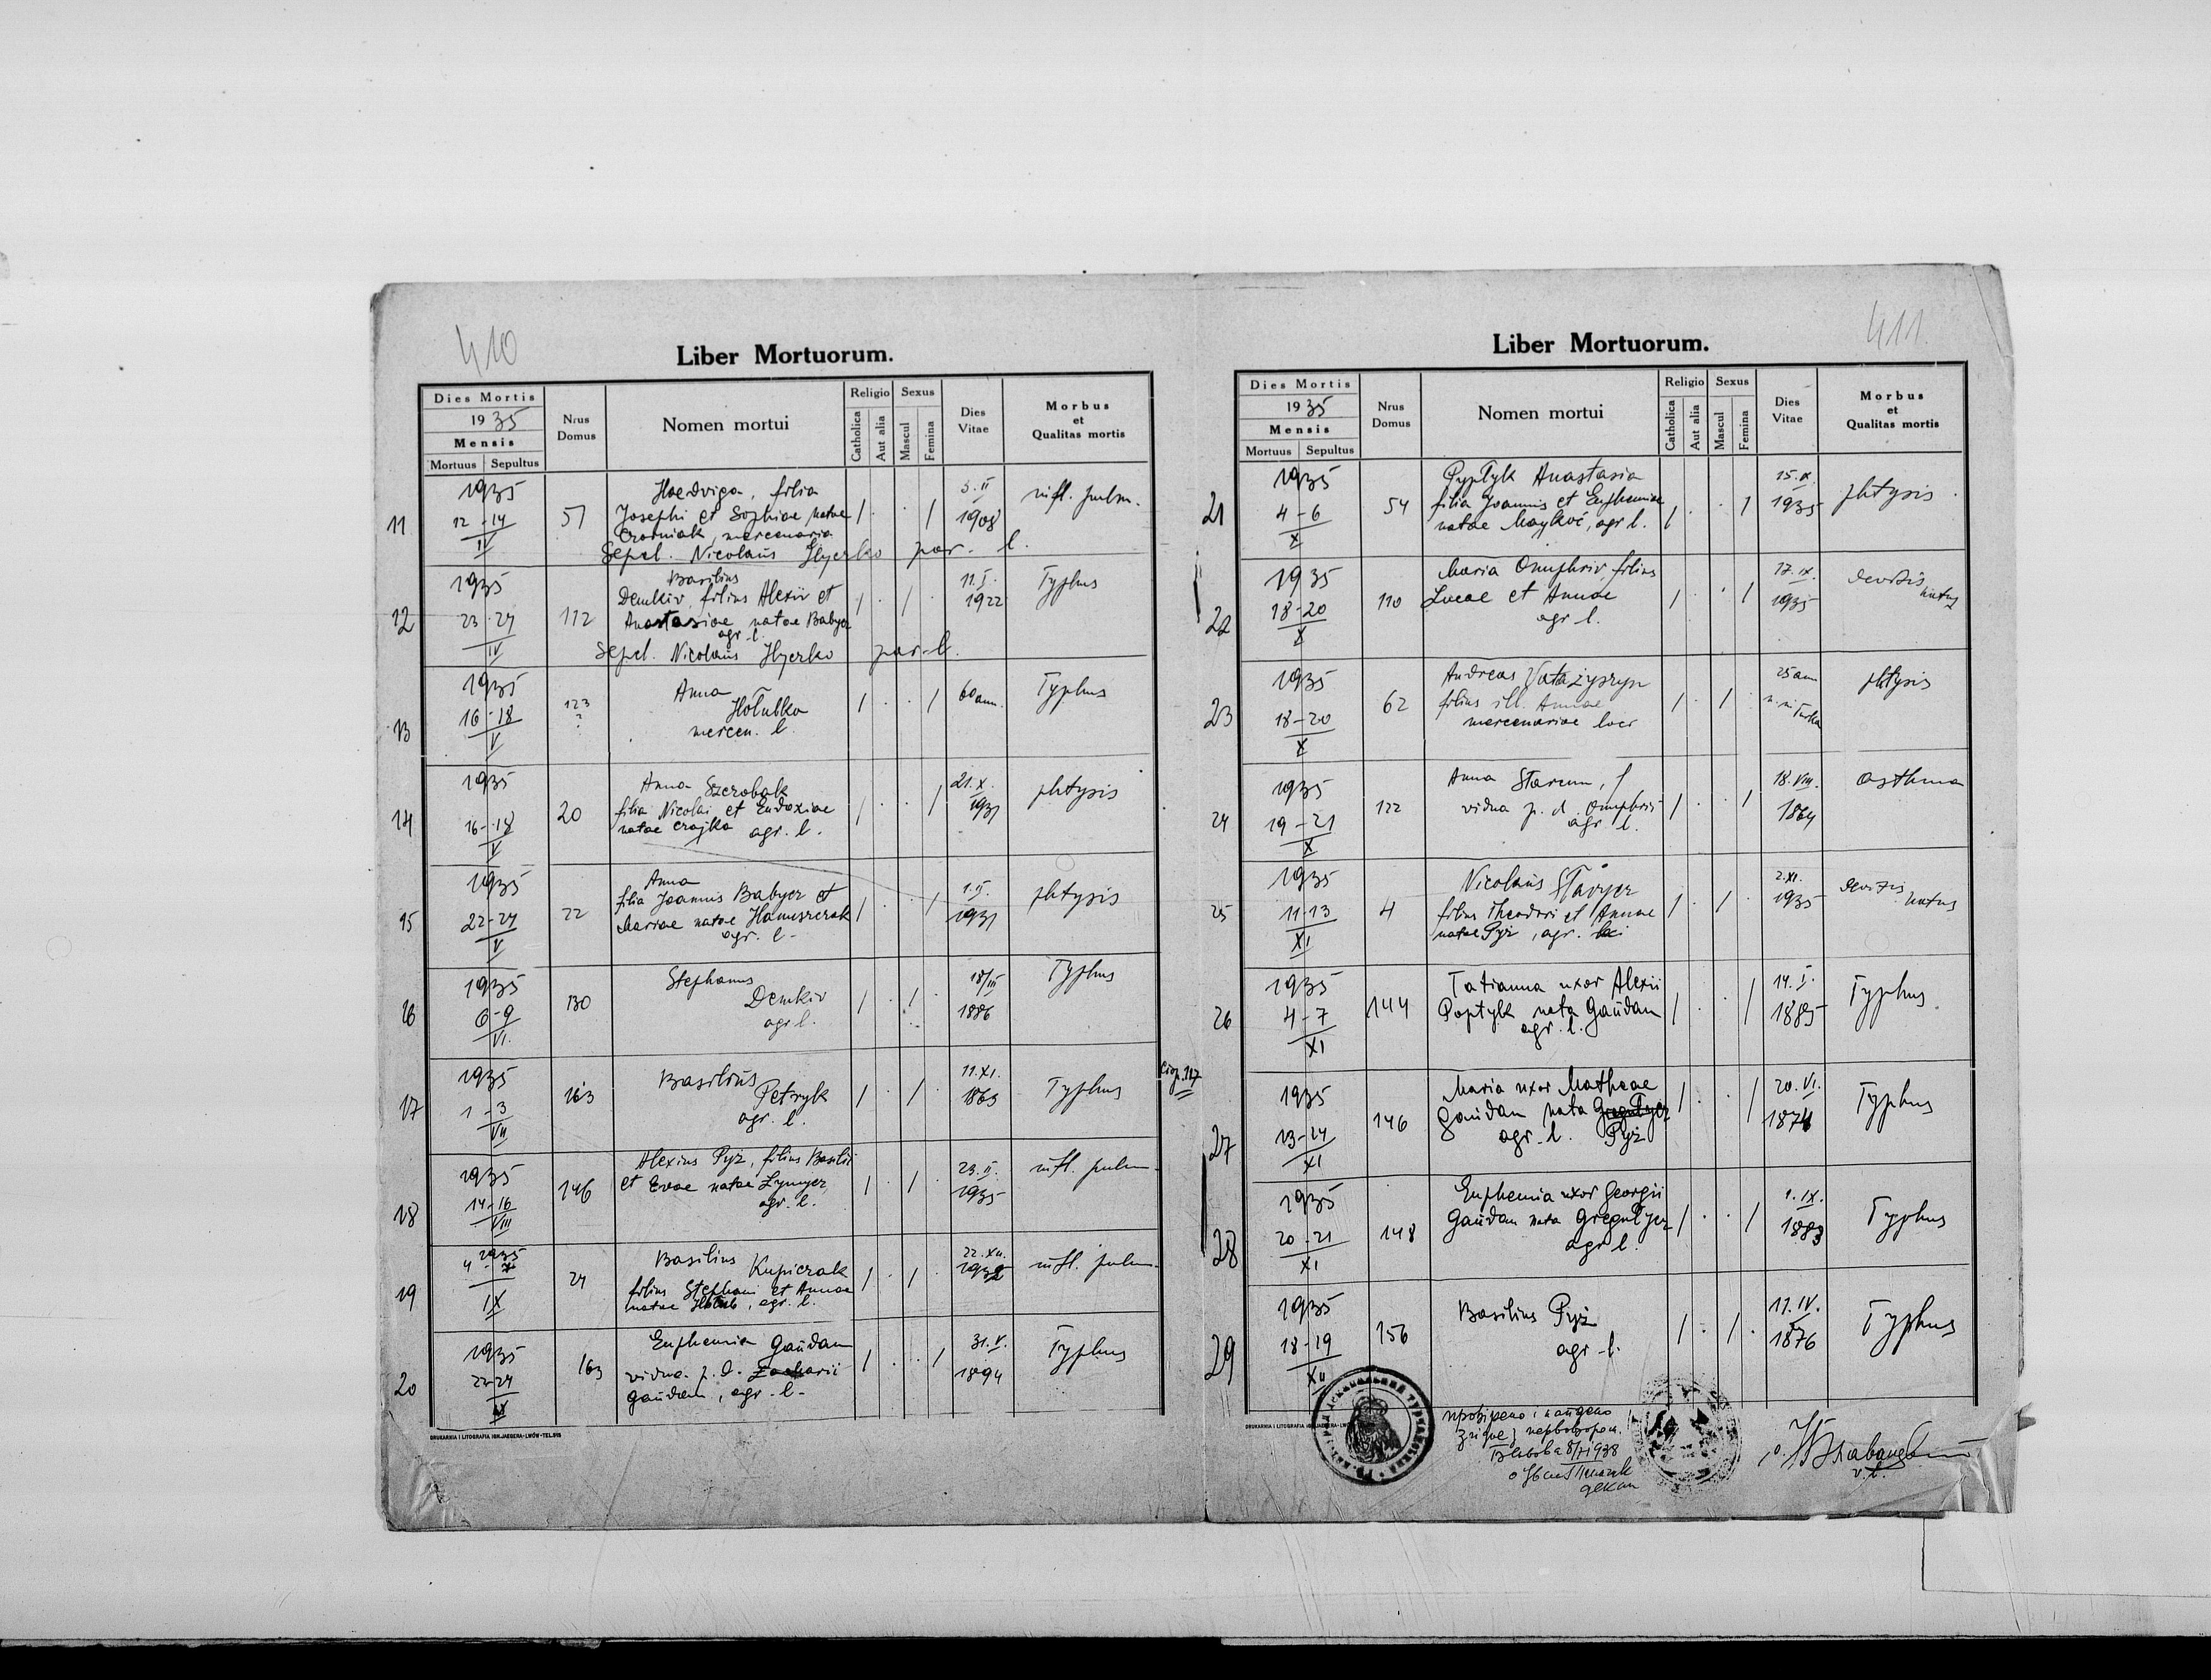 410
Liber Mortuorum.
Dies Mortis
1935
Mensis
Mortuus Sepultus
Nrus Domus
Nomen mortui
Religio
Catholica
Aut alia
Sexus
Mascul
Femina
Dies Vitae
Morbus et Qualitas mortis
11
1935
12-14
IV
51
Haedviga, filia
Josephi et Sophiae natae
mercenaria
/ . . /
5. II
1908
infl. pulm.
Sepel. Nicolaus Ilyerko par. l.
12
1935
23-24
IV
112
Basilius
Demkiv, filius Alexii et
Anastasiae natae Babyer
agr. l.
/ . / .
11. I.
1922
Typhus
Sepel. Nicolaus Ilyerko par. l.
13
1935
16-18
V
123
?
Anna
Hołubka
mercen. l.
/ . . /
60 ann.
Typhus
14
1935
16-18
V
20
Anna Szerobak
filia Nicolai et Eudoxiae
natae Czajka agr. l.
/ . . /
21. X.
1931
phtysis
15
1935
22-24
V
22
Anna
filia Joannis Babyer et
Mariae natae Hanuszczak
agr. l.
/ . . /
1. II.
1931
phtysis
16
1935
6-9
VI.
130
Stephanus
Demkiv
agr l.
/ . / .
18/III
1886
Typhus
17
1935
1-3
VII
163
Basilius
Petryk
agr. l.
/ . / .
11. XI.
1863
Typhus
18
1935
14-16
VIII
146
Alexius Pyż, filius Basilii
et Evae natae Łymycz
agr. l.
/ . / .
23. II.
1935
infl. pulm.
19
1935
4-7
IX
24
Basilius Kupiczak
filius Stephani et Annae
natae Hołub, agr. l.
/ . / .
22. XII.
1932
infl. pulm.
20
1935
22-24
IX
163
Euphemia Gaūdan
vidua p. d. Zacharii
Gaūdan, agr. l.
/ . . /
31. V.
1894
Typhus
DRUKARNIA I LITOGRAFIA IGN.JAEGERA-LWÓW-TEL.518
411.
Liber Mortuorum.
Dies Mortis
1935
Mensis
Mortuus Sepultus
Nrus Domus
Nomen mortui
Religio
Catholica
Aut alia
Sexus
Mascul
Femina
Dies Vitae
Morbus et Qualitas mortis
21
1935
4-6
X
54
Pyptyk Anastasia
filia Joannis et Euphemiae
natae Majkoć, agr l.
/ . . /
15. IX
1935
phtysis
22
1935
18-20
X
110
Maria Onuphriv, filius
Lucae et Annae
agr l.
/ . . /
17. IX.
1935
natus
23
1935
18-20
X
62
Andreas
filius ill. Annae
mercenariae loci
/ . / .
25 ann
Turka
phtysis
24
1935
19-21
X
122
Anna Starcun,
vidua p. d. Onuphrii
agr l.
/ . . /
18. VIII.
1864
asthma
25
1935
11-13
XI
4
Nicolaus
filius Theodori et Annae
natae Pyż, agr. loci
/ . / .
2. XI.
1935
natus
26
1935
4-7
XI
144
Tatianna uxor Alexii
Poptyk nata Gaūdan
agr. l.
/ . . /
14. I.
1885
Typhus
27
1935
13-14
XI
146
Maria uxor Matheae
Gaūdan nata Gregułycz
agr. l. Pyż
/ . . /
20. VI.
1874
Typhus
28
1935
20-21
XI
148
Euphemia uxor Georgii
Gaūdan nata Gregułycz
agr l.
/ . . /
1. IX.
1883
Typhus
29
1935
18-19
XII
156
Basilius Pyż
agr. l.
/ . / .
11. IV.
1876
Typhus
провірено і найдено
згідне з первовзором.
8/II 1938
декан